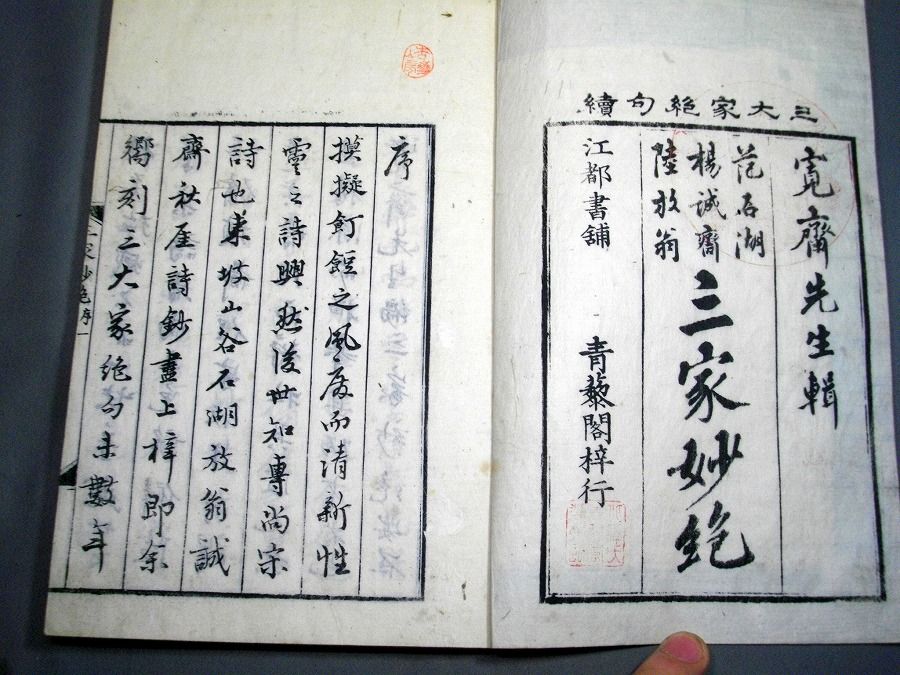 三大家絶句續
寛齋先生輯
范石湖
楊誠齋
陸放翁
三家妙絶
江都書舖 青藜閣梓行
序
摸擬飣餖之風廢而清新性
靈之詩興然後世知專尚宋
詩也東坡山谷石湖放翁誠
齋秋厓詩鈔盡上梓即余
嚮刻三大家絶句未數年
家妙絶序 一